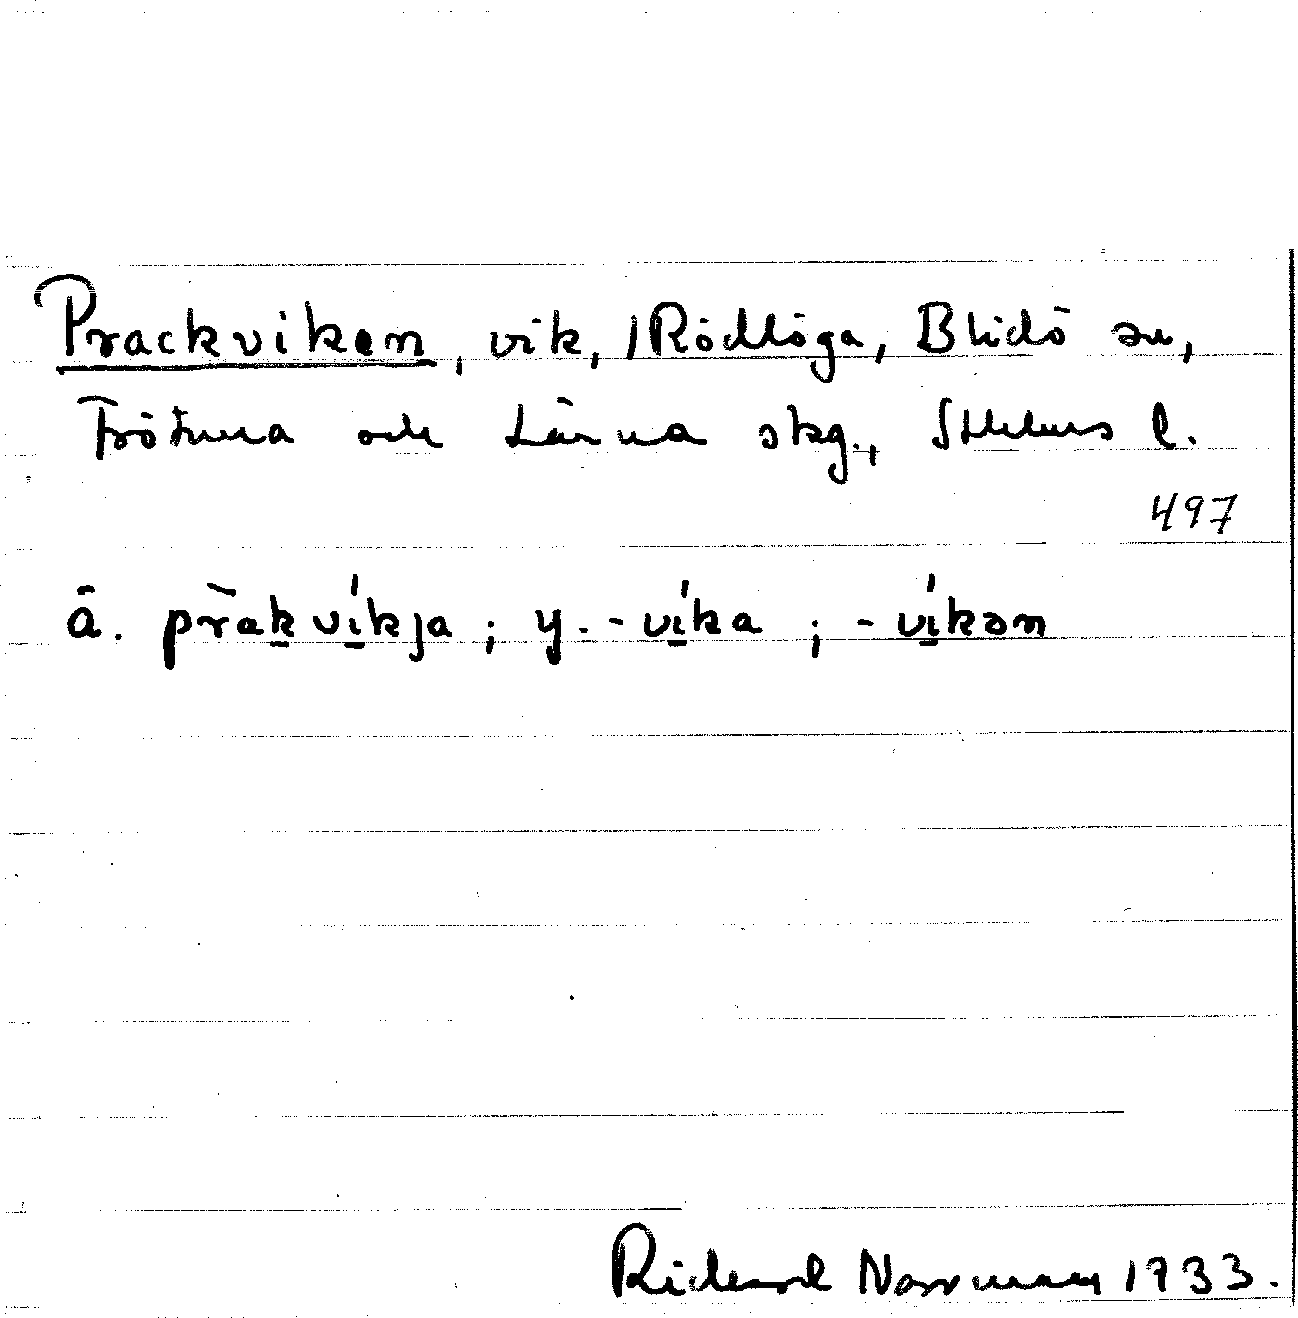 Prackviken, vik, /Rödlöga, Blidö sn,
Frötuna och Länna skg., Sthlms l.
497
ä. pràkvíkja; y. -víka ; -víkən
Rickard Norrman 1933.